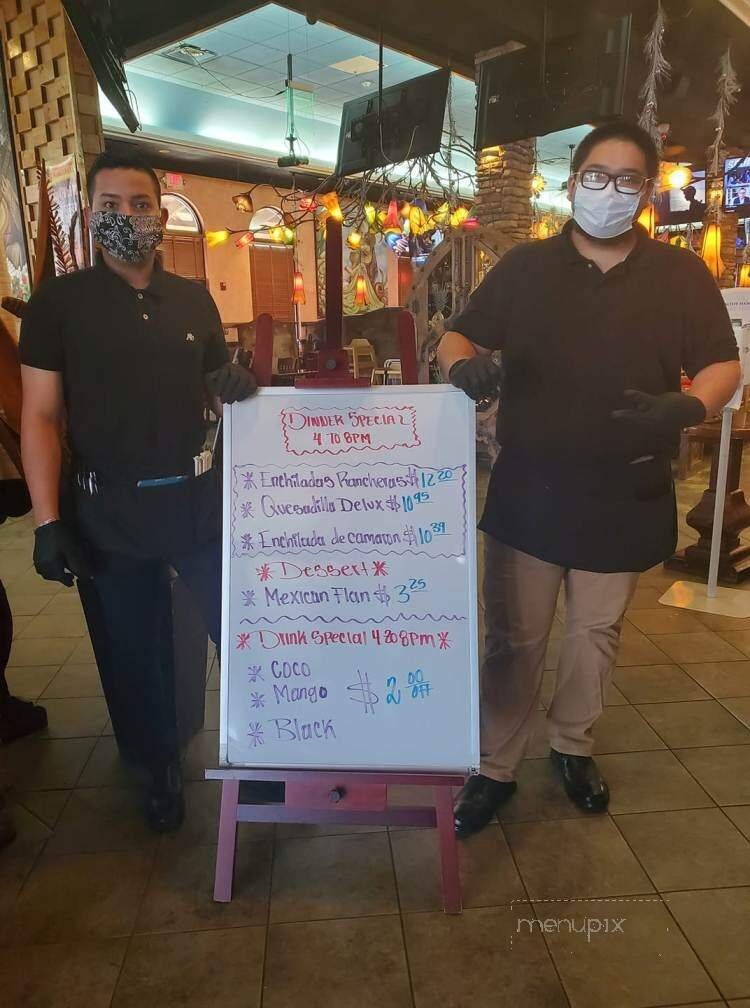 Dinner Special
4 TO 8PM
* Enchiladas Rancheras $12.20
* Quesadilla Delux $10.95
* Enchilada de camaron $10.39
* Dessert *
* Mexican Flan $3.25
* Drink Special 4 to 8pm *
* COCO
* Mango $2.00 off
* Black
menupix